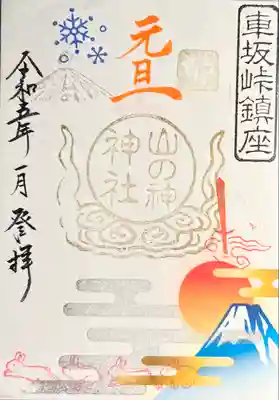 車坂峠鎮座
元旦
山の神
神社
令和五年一月登拝